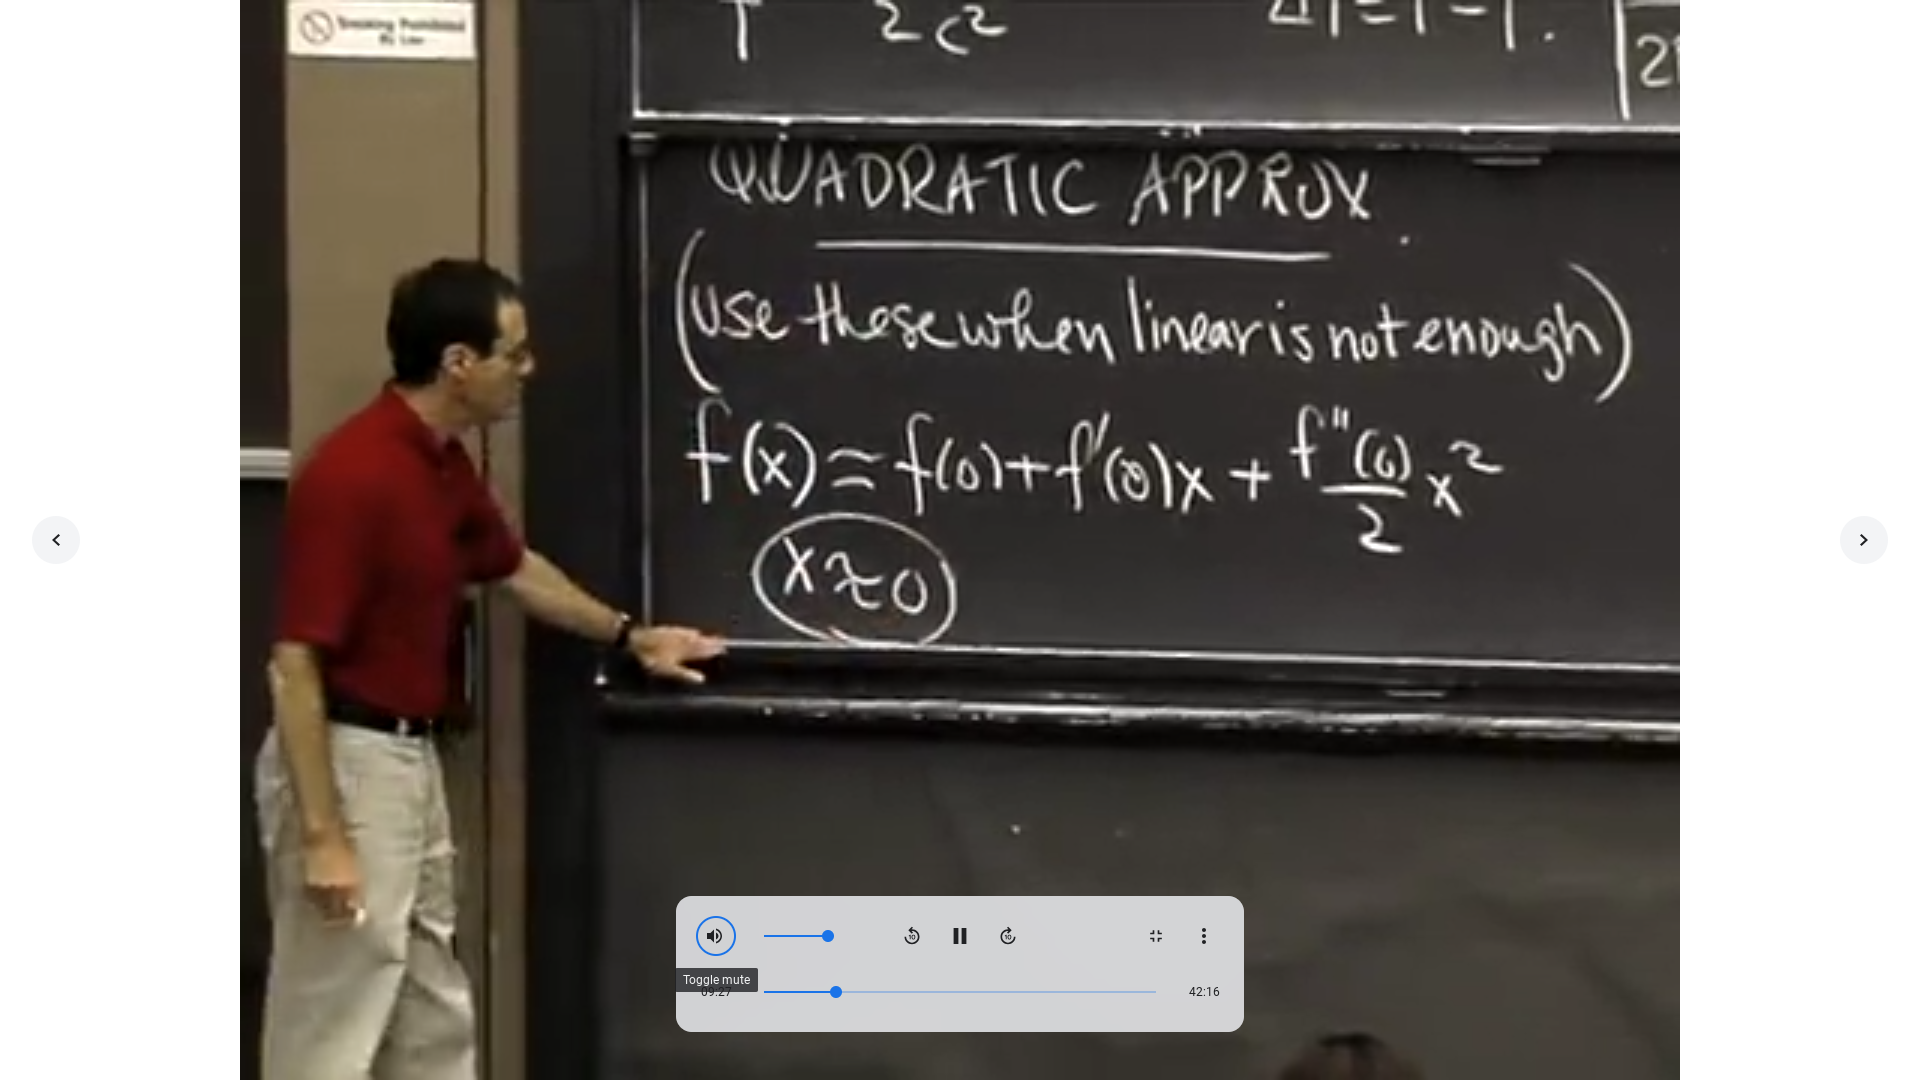 Smoking Prohibited
By Law
T 2 c²
ΔT = T - T.
QUADRATIC APPROX
(Use these when linear is not enough)
f(x) ≈ f(0) + f'(0)x + f''(0)/2 x²
x ≈ 0
Toggle mute
09:27
42:16